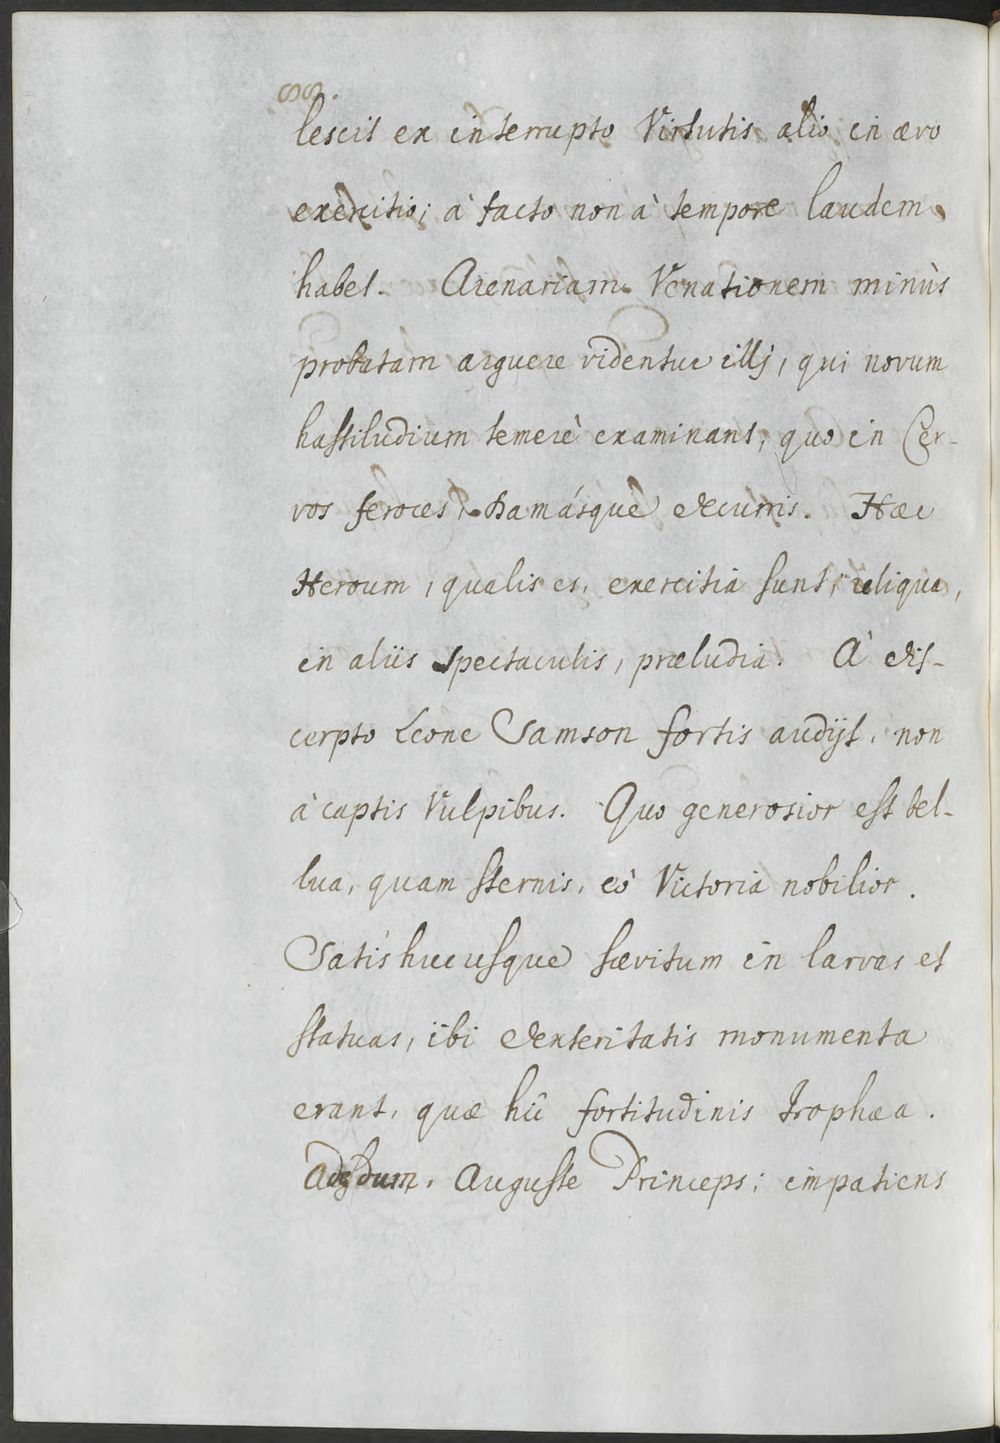 lescit ex interrupto Virtutis alio in ævo
exercitio; à facto non à tempore laudem
habet. Arenariam Venationem minùs
probatam arguere videntur illj, qui novum
hastiludium temerè examinant, quo in Cer-
vos feroces, Damásque decurris. Hæc
Heroum, qualis es, exercitia sunt; reliqua,
in aliis spectaculis, præludia. À dis-
cerpto Leone Samson fortis audijt, non
à captis Vulpibus. Quo generosior est bel-
lua, quam sternis, eò Victoria nobilior.
Satis hucusque sævitum in larvas et
statuas, ibi dexteritatis monumenta
erant, quæ hîc fortitudinis trophæa.
Adesdum, Auguste Princeps; impatiens